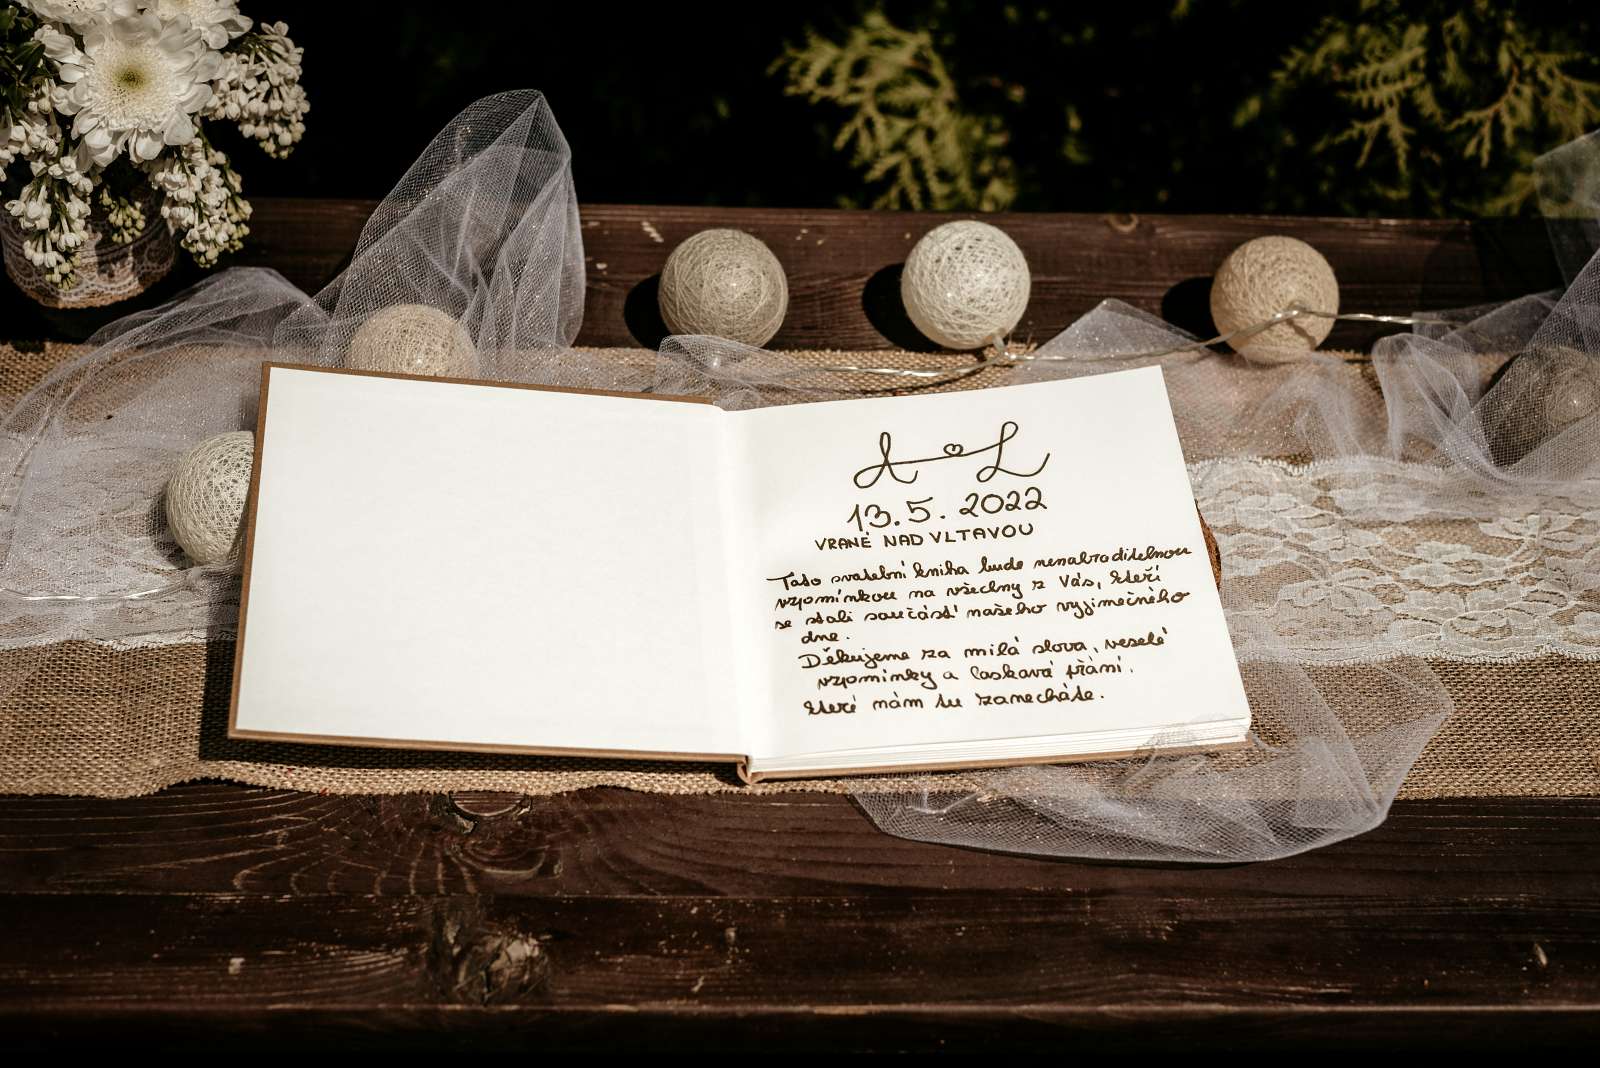 A ♡ L
13.5.2022
VRANÉ NAD VLTAVOU
Tato svatební kniha bude nenahraditelnou
vzpomínkou na všechny z Vás, kteří
se stali součástí našeho vyjimečného
dne.
Děkujeme za milá slova, veselé
vzpomínky a laskavá přání.
které nám tu zanecháte.